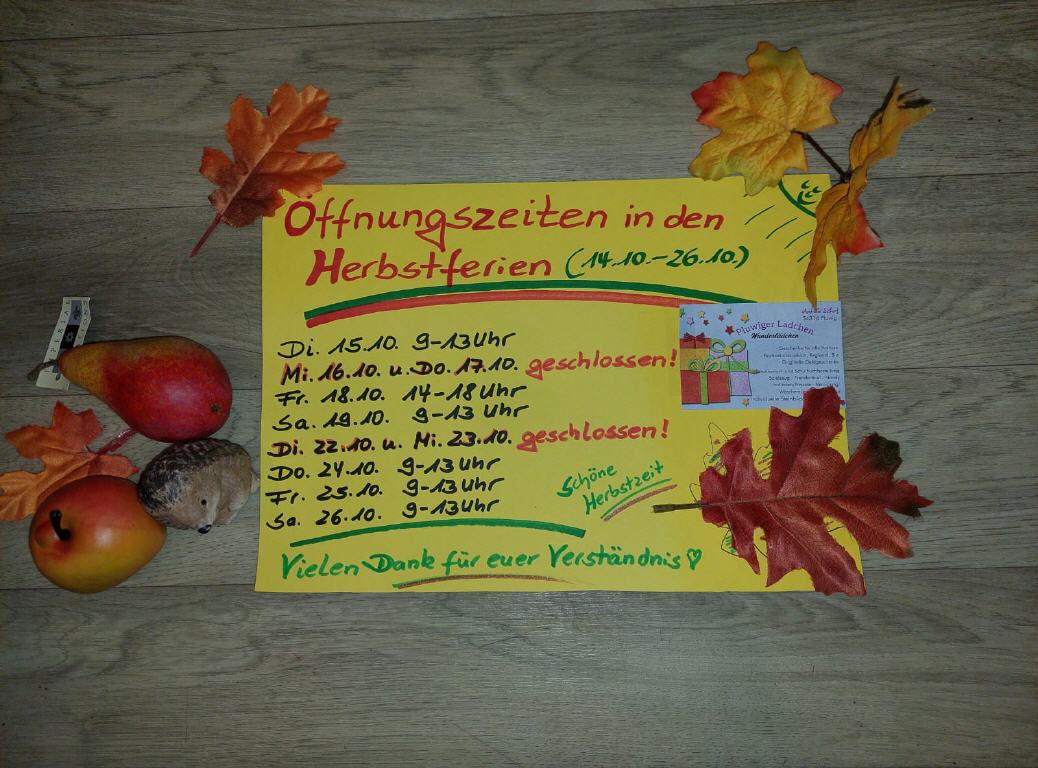 Öffnungszeiten in den
Herbstferien (14.10.-26.10.)
Di. 15.10. 9-13Uhr
Mi. 16.10. u. Do. 17.10. geschlossen!
Fr. 18.10. 14-18Uhr
Sa. 19.10. 9-13 Uhr
Di. 22.10. u. Mi. 23.10. geschlossen!
Do. 24.10. 9-13Uhr
Fr. 25.10. 9-13Uhr
Sa. 26.10. 9-13Uhr
Schöne
Herbstzeit
Vielen Dank für euer Verständnis
Pluwiger Lädchen
Wunderlädchen